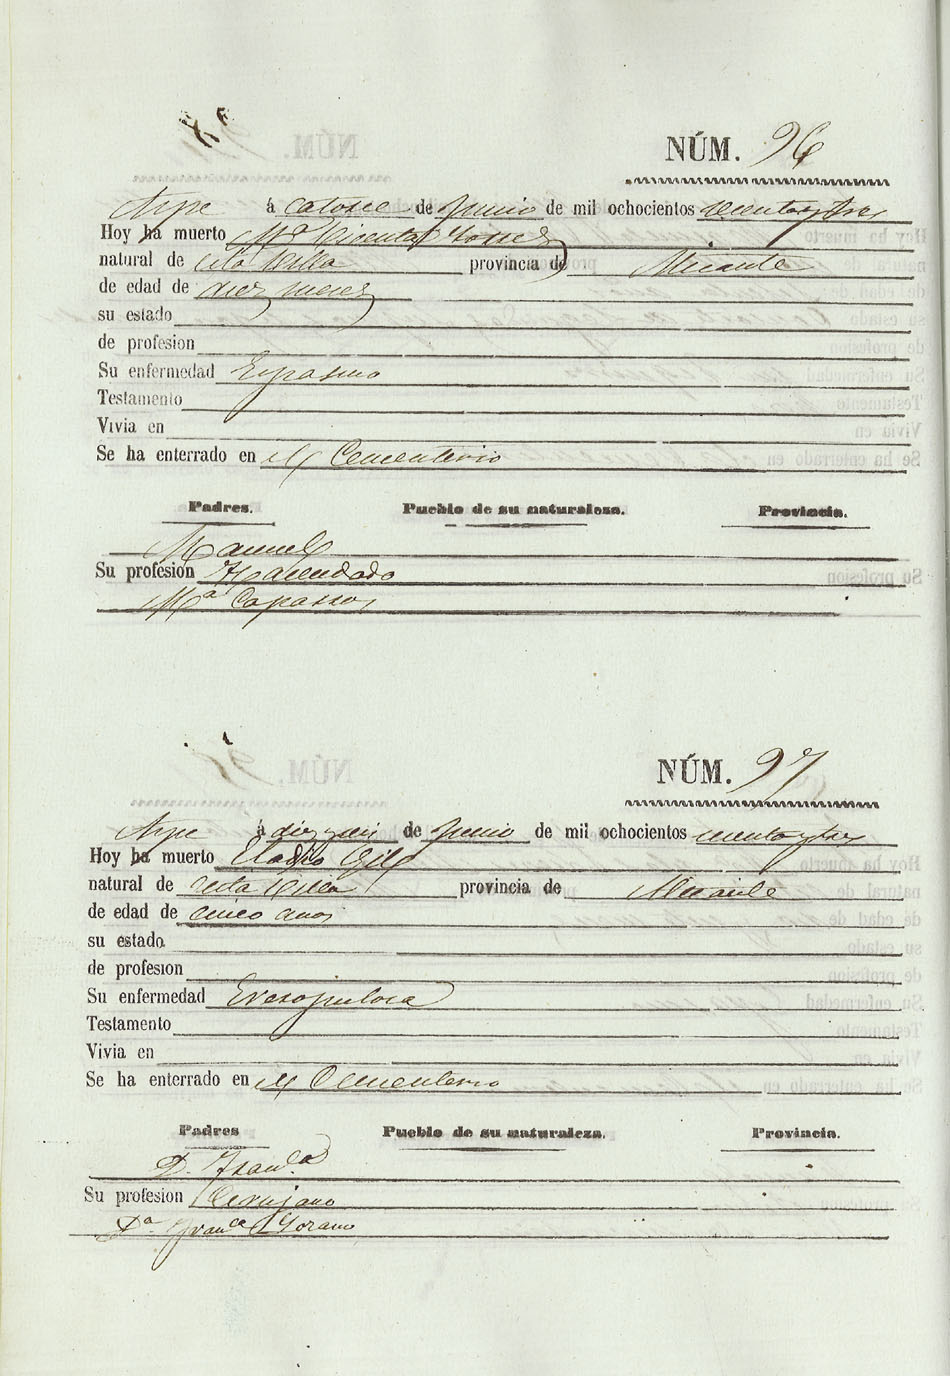 NÚM. 96
Aspe á catorce de Junio de mil ochocientos cuarenta y tres
Hoy ha muerto Mª Vicenta Torres
natural de esta Villa provincia de Alicante
de edad de diez meses
su estado
de profesion
Su enfermedad Espasmo
Testamento
Vivia en
Se ha enterrado en el Cementerio
Padres. Pueblo de su naturaleza. Provincia.
Manuel
Su profesion Hacendado
Mª
NÚM. 97
Aspe á diez y seis de Junio de mil ochocientos cuarenta y tres
Hoy ha muerto Eladio Gil
natural de esta Villa provincia de Alicante
de edad de cinco años
su estado
de profesion
Su enfermedad
Testamento
Vivia en
Se ha enterrado en el Cementerio
Padres Pueblo de su naturaleza. Provincia.
D.
Su profesion Cirujano
Dª Franca